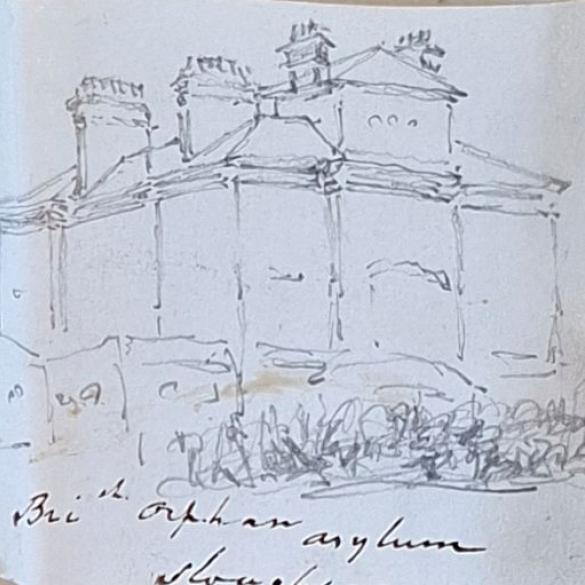 Bri^sh. orphan asylum
Slough